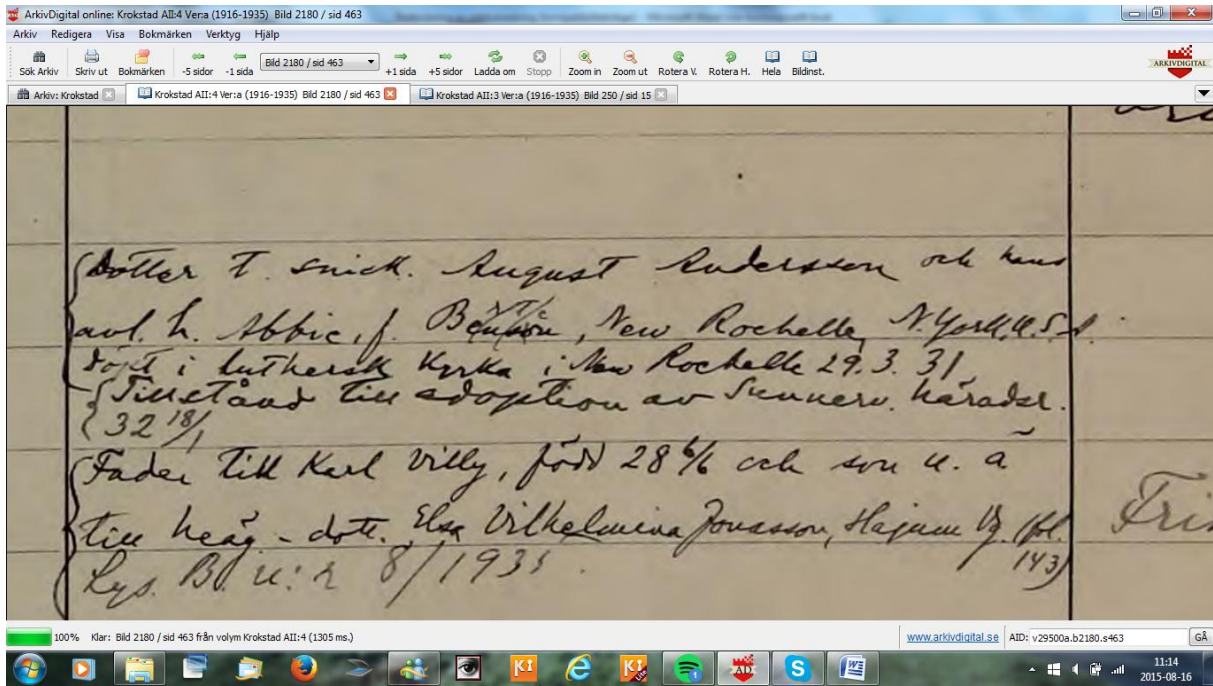 ArkivDigital online: Krokstad AII:4 Ver:a (1916-1935) Bild 2180 / sid 463
Arkiv Redigera Visa Bokmärken Verktyg Hjälp
Sök Arkiv Skriv ut Bokmärken -5 sidor -1 sida Bild 2180 / sid 463 +1 sida +5 sidor Ladda om Stopp Zoom in Zoom ut Rotera V. Rotera H. Hela Bildinst. ARKIVDIGITAL
Arkiv: Krokstad Krokstad AII:4 Ver:a (1916-1935) Bild 2180 / sid 463 Krokstad AII:3 Ver:a (1916-1935) Bild 250 / sid 15
Dotter t. snick. August Andersson och hans
avl. h. Abbie, f. New Rochelle, N. York, U.S.A.
döpt i luthersk kyrka i New Rochelle 29.3.31
Tillstånd till adoption av Sunnerv. häradsr.
32 18/1
Fader till Karl Villy, född 28 6/6 och son u. ä
till heäg.-dott. Elsa Vilhelmina Jonasson, Hajum Vg. (fol.
143)
Lys. B. n:r 8/1935.
100% Klar: Bild 2180 / sid 463 från volym Krokstad AII:4 (1305 ms.) www.arkivdigital.se AID: v29500a.b2180.s463 GÅ
11:14
2015-08-16